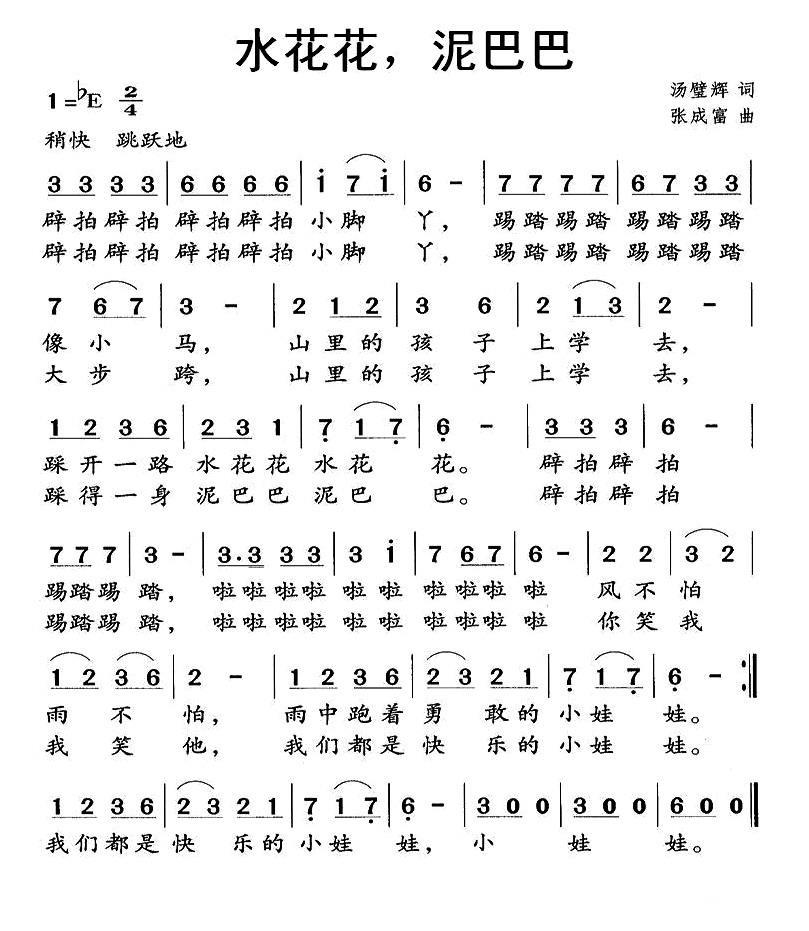 水花花，泥巴巴
1=♭E 2/4
汤璧辉 词
张成富 曲
稍快 跳跃地
3 3 3 3 | 6 6 6 6 | i 7 i | 6 - | 7 7 7 7 | 6 7 3 3 |
辟拍辟拍 辟拍辟拍 小脚 丫， 踢踏踢踏 踢踏踢踏
辟拍辟拍 辟拍辟拍 小脚 丫， 踢踏踢踏 踢踏踢踏
7 6 7 | 3 - | 2 1 2 | 3 6 | 2 1 3 | 2 - |
像小 马， 山里的孩子上学 去，
大步 跨， 山里的孩子上学 去，
1 2 3 6 | 2 3 1 | 7̣ 1 7̣ | 6̣ - | 3 3 3 | 3 3 6 |
踩开一路 水花花 水花 花。 辟拍辟 拍
踩得一身 泥巴巴 泥巴 巴。 辟拍辟 拍
7 7 7 | 3 - | 3·3 3 3 | 3 i | 7 6 7 | 6 - | 2 2 | 3 2 |
踢踏踢 踏， 啦啦啦啦 啦 啦 啦啦啦 啦 风不怕
踢踏踢 踏， 啦啦啦啦 啦 啦 啦啦啦 啦 你笑我
1 2 3 6 | 2 - | 1 2 3 6 | 2 3 2 1 | 7̣ 1 7̣ | 6̣ - :‖
雨 不 怕， 雨中跑着勇 敢的小娃 娃。
我 笑 他， 我们都是快 乐的小娃 娃。
1 2 3 6 | 2 3 2 1 | 7̣ 1 7̣ | 6̣ - | 3 0 0 | 3 0 0 | 6 0 0 ‖
我们都是快 乐的小娃 娃， 小 娃 娃。